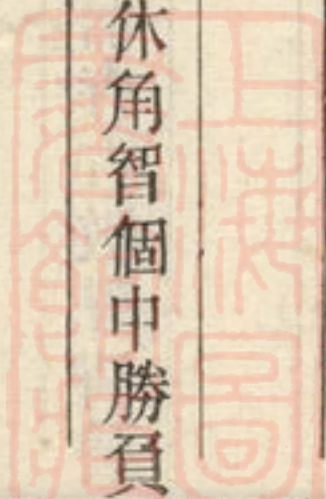 休角智個中勝負